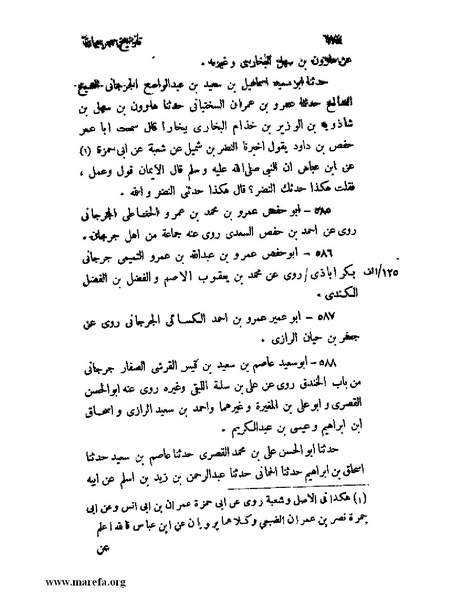 عن هارون بن سهل البخارى و غيره .
حدثنا ابو سعيد اسماعيل بن سعيد بن عبدالواسع الجرجانى الشيخ
الصالح حدثنا عمرو بن عمران السختيانى حدثنا هارون بن سهل بن
شاذويه بن الوزير بن خذام البخارى ببخارا قال سمعت ابا عمر
حفص بن داود يقول اخبرنا النضر بن شميل عن شعبة عن ابى حمزة (١)
عن ابن عباس ان النبى صلى الله عليه و سلم قال الايمان قول وعمل ،
فقلت هكذا حدثك النضر؟ قال هكذا حدثنى النضر و الله .
٥٨٥ – ابو حفص عمرو بن محمد بن عمرو الجرجانى
روى عن احمد بن حفص السعدى روى عنه جماعة من اهل جرجان .
٥٨٦ – ابوحفص عمرو بن عبدالله بن عمرو التميمى جرجانى
١٢٥/الف بكر اباذى / روى عن محمد بن يعقوب الاصم و الفضل بن الفضل
الكندى .
٥٨٧ – ابو عمير عمرو بن احمد الكسائى الجرجانى روى عن
جعفر بن حيان الرازى .
٥٨٨ – ابوسعيد عاصم بن سعيد بن قيس القرشى الصفار جرجانى
من باب الخندق روى عن على بن سلمة اللبقى وغيره روى عنه ابوالحسن
القصرى و ابو على بن المغيرة و غيرهما واحمد بن سعيد الرازى و اسحاق
ابن ابراهيم و عيسى بن عبدالكريم .
حدثنا ابو الحسن على بن محمد القصرى حدثنا عاصم بن سعيد حدثنا
اسحاق بن ابراهيم حدثنا الحمانى حدثنا عبدالرحمن بن زيد بن اسلم عن ابيه
(١) هكذا فى الاصل و شعبة روى عن ابى حمزة عمران بن ابى انس وعن ابى
جمرة نصر بن عمران الضبعى وكلاهما يرويان عن ابن عباس فالله اعلم
عن
www.marefa.org